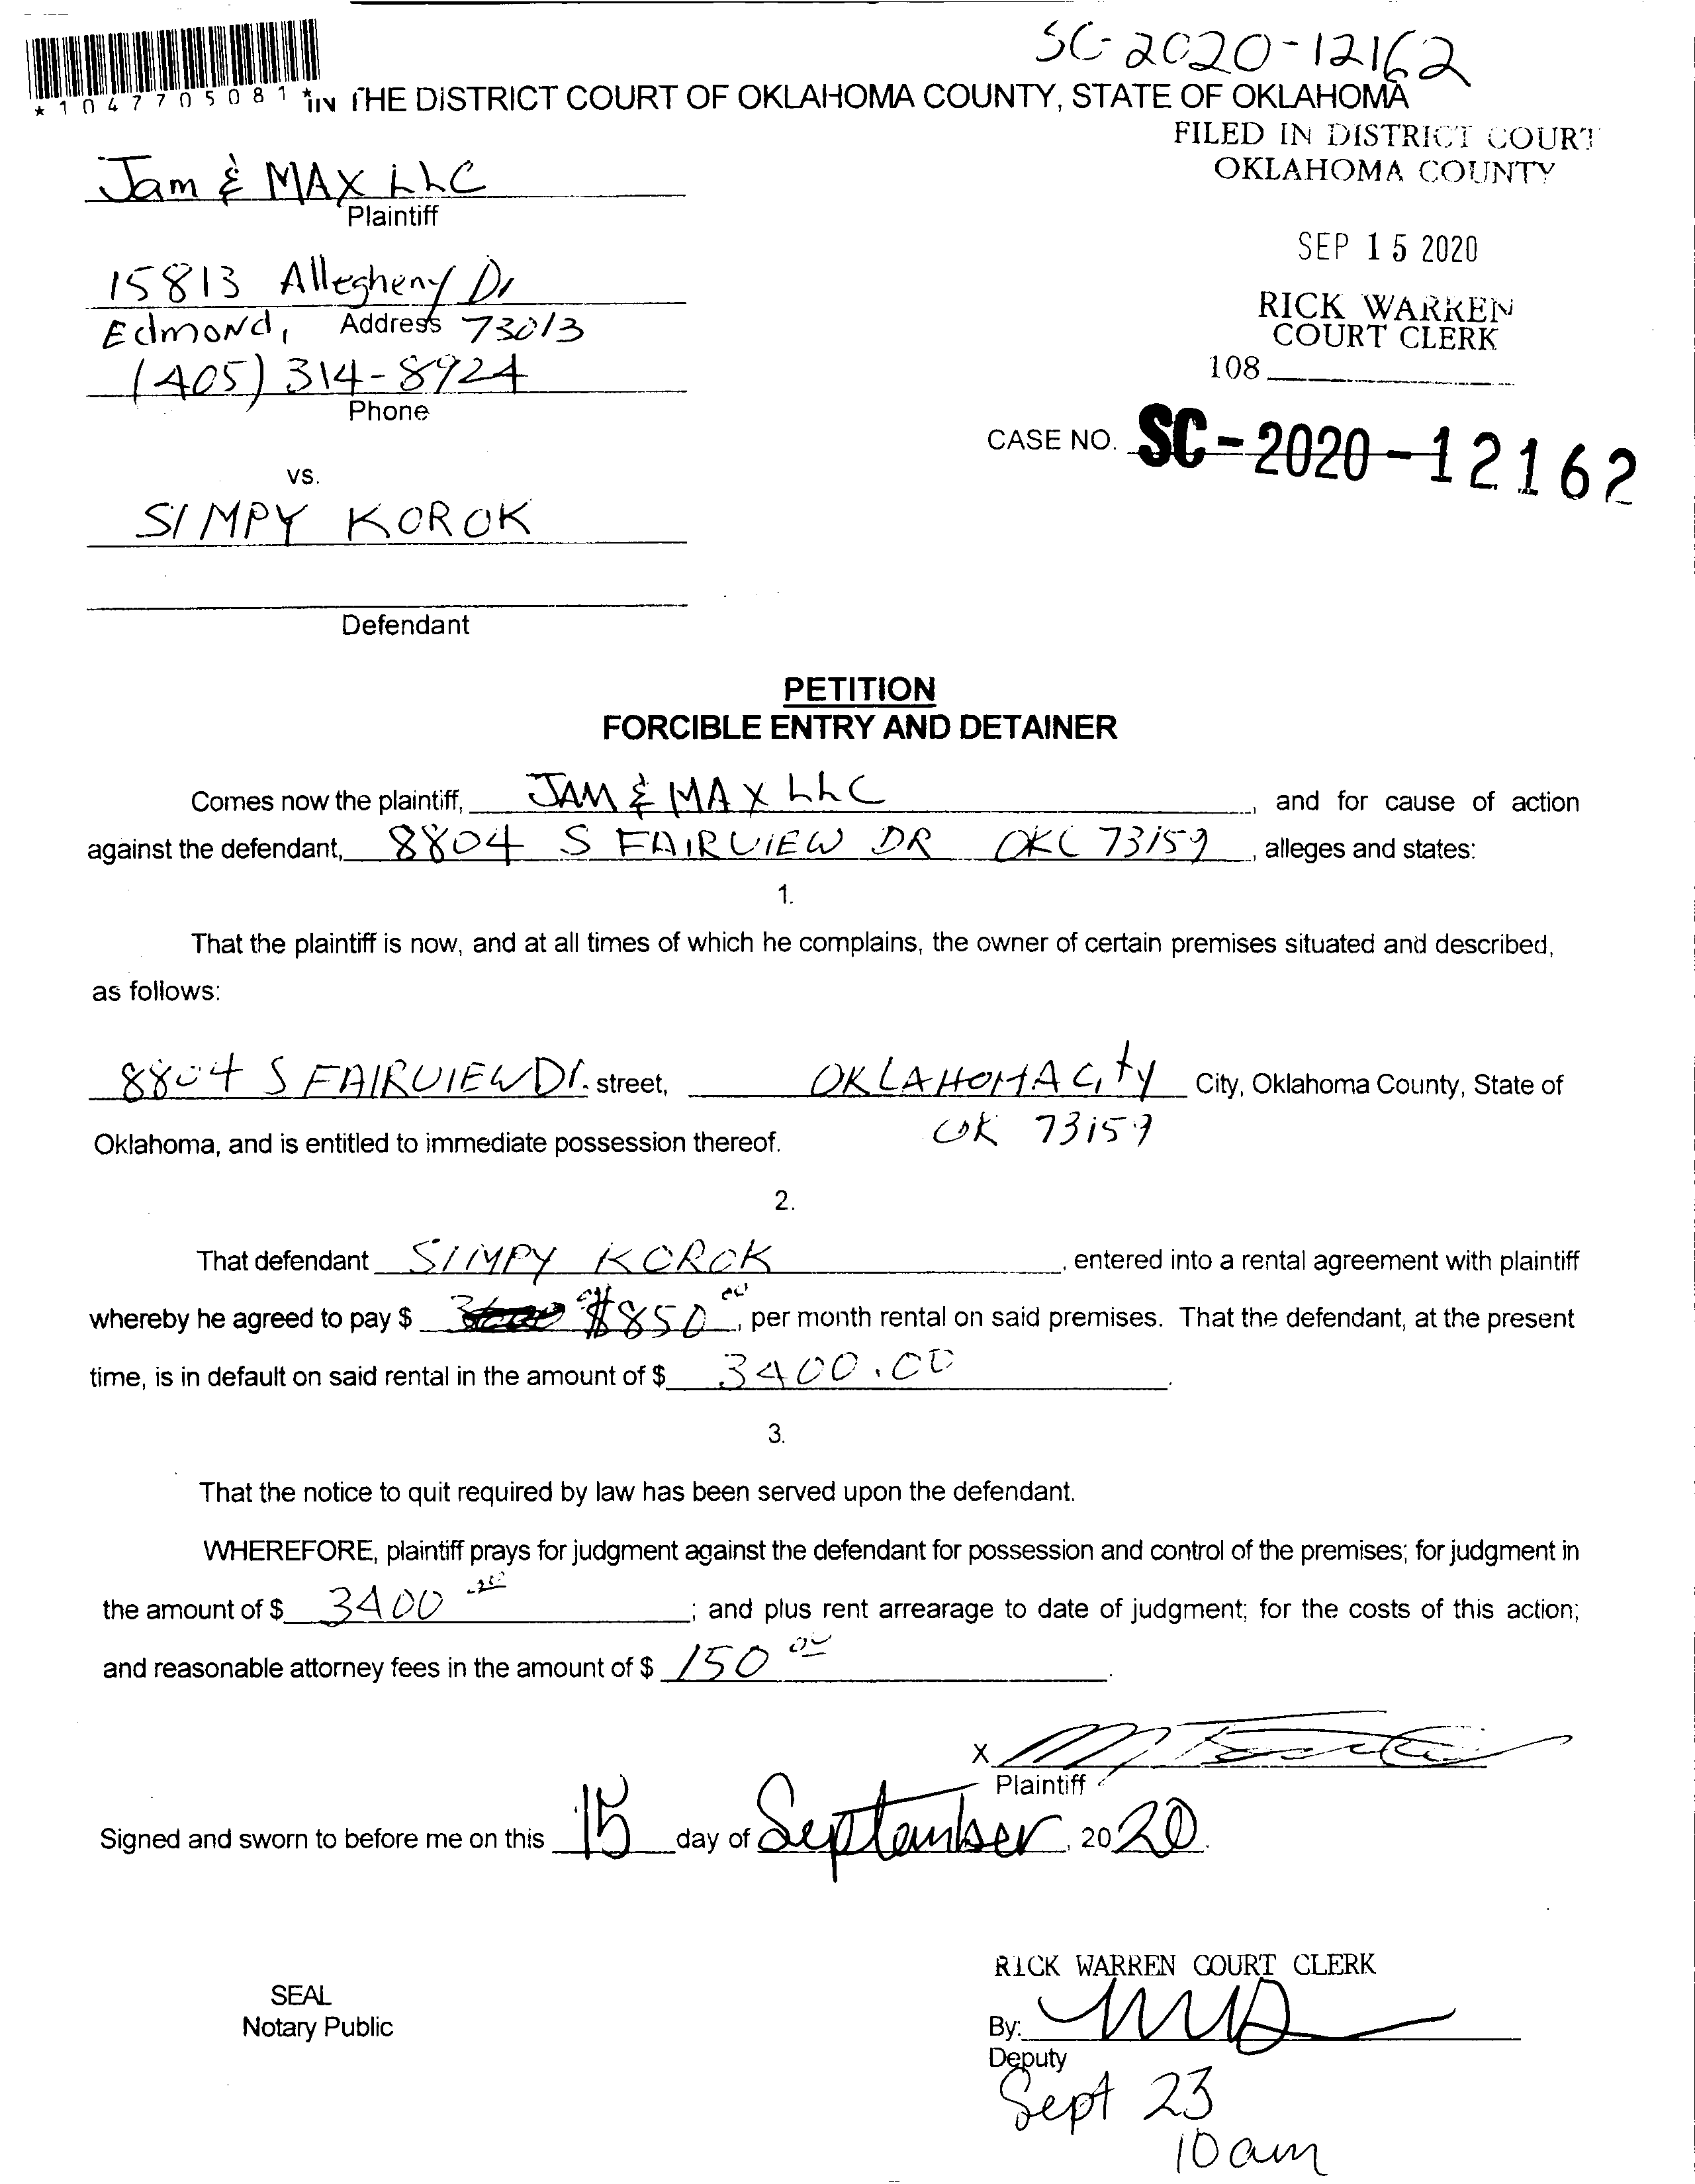 SC-2020-12162
*1047705081*
IN THE DISTRICT COURT OF OKLAHOMA COUNTY, STATE OF OKLAHOMA
FILED IN DISTRICT COURT
OKLAHOMA COUNTY
Jam & MAX LLC
Plaintiff
SEP 15 2020
15813 Allegheny Dr
Address
Edmond, 73013
RICK WARREN
COURT CLERK
(405) 314-8924
Phone
108
CASE NO. SC-2020-12162
vs.
SIMPY KOROK
Defendant
PETITION
FORCIBLE ENTRY AND DETAINER
Comes now the plaintiff, JAM & MAX LLC, and for cause of action
against the defendant, 8804 S FAIRVIEW DR OKC 73159, alleges and states:
1.
That the plaintiff is now, and at all times of which he complains, the owner of certain premises situated and described,
as follows:
8804 S FAIRVIEW Dr. street, OKLAHOMA City City, Oklahoma County, State of
OK 73159
Oklahoma, and is entitled to immediate possession thereof.
2.
That defendant SIMPY KOROK, entered into a rental agreement with plaintiff
whereby he agreed to pay $ $850 00, per month rental on said premises. That the defendant, at the present
time, is in default on said rental in the amount of $ 3400.00.
3.
That the notice to quit required by law has been served upon the defendant.
WHEREFORE, plaintiff prays for judgment against the defendant for possession and control of the premises; for judgment in
the amount of $ 3400 .00; and plus rent arrearage to date of judgment; for the costs of this action;
and reasonable attorney fees in the amount of $ 150 00.
X
Plaintiff
Signed and sworn to before me on this 15 day of September, 2020.
RICK WARREN COURT CLERK
SEAL
Notary Public
By:
Deputy
Sept 23
10 am